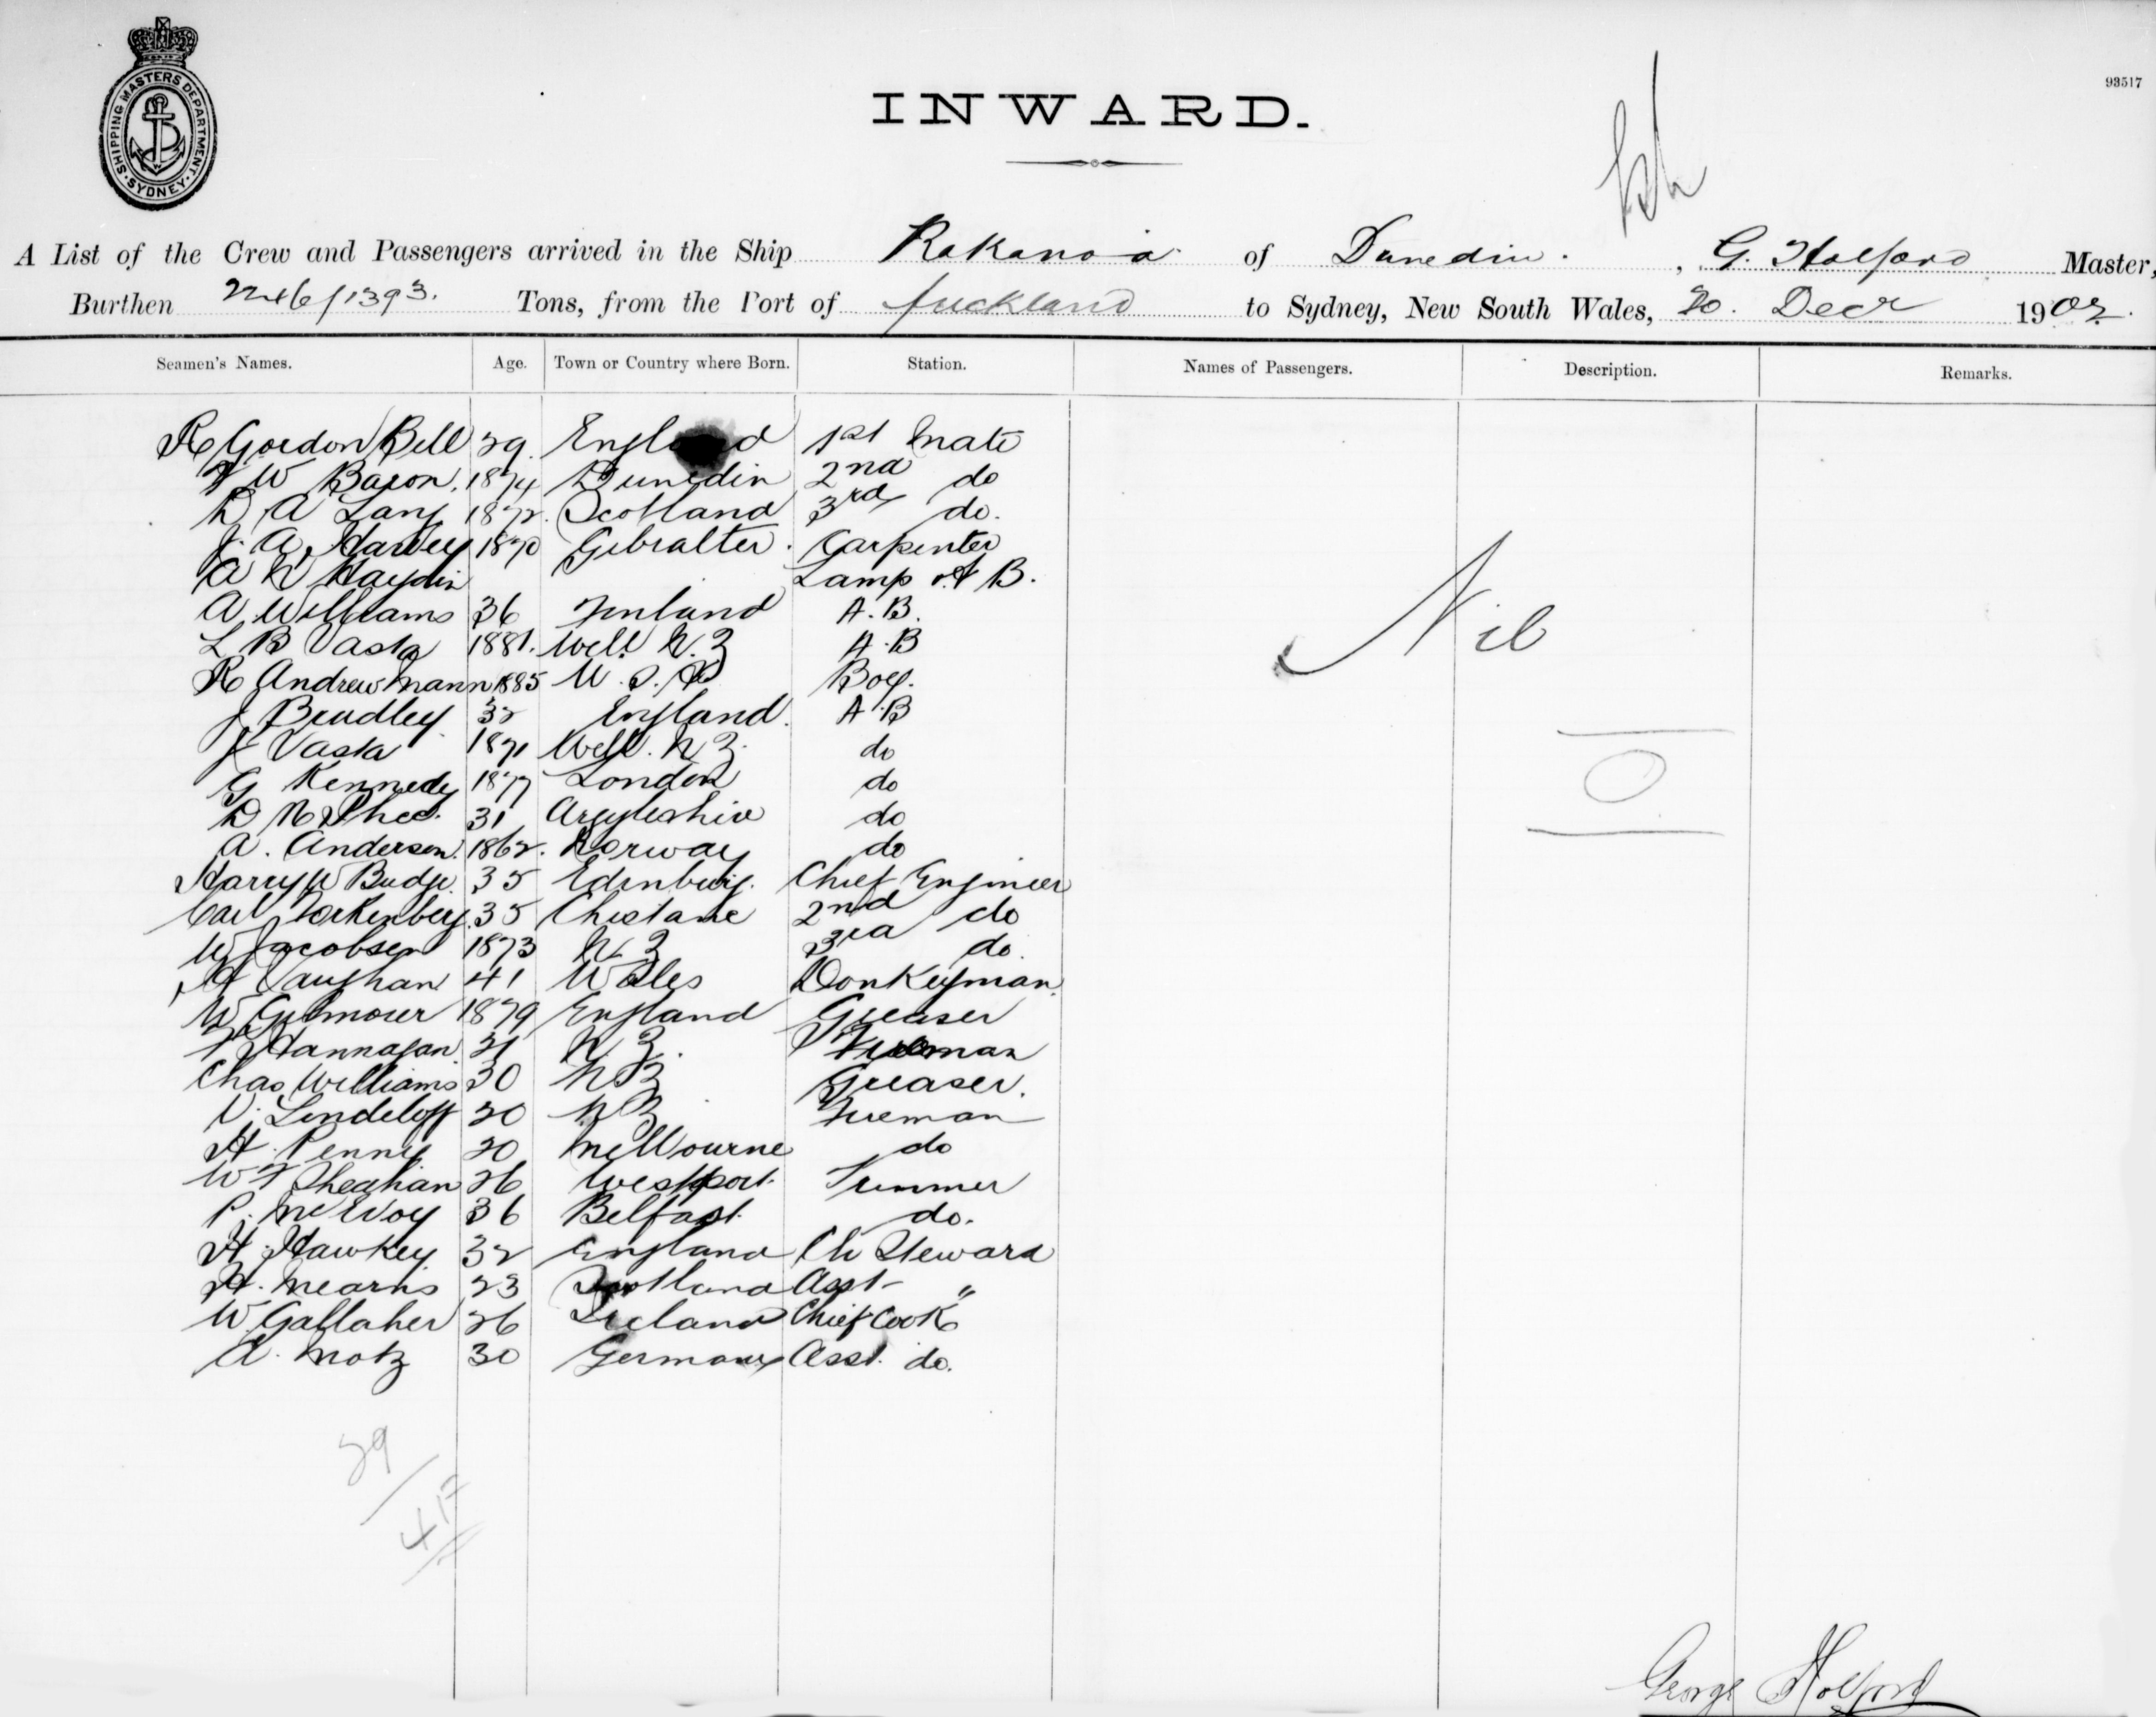 SHIPPING MASTERS DEPARTMENT. SYDNEY.
93517
INWARD.
A List of the Crew and Passengers arrived in the Ship Rakanoa of Dunedin. , G. Holford Master,
Burthen 2246/1393. Tons, from the Port of Auckland to Sydney, New South Wales, 20. Decr 1902.
Seamen's Names. Age. Town or Country where Born. Station. Names of Passengers. Description. Remarks.
R Gordon Bell 29. England 1st Mate
W Bacon. 1874 Dunedin 2nd do
D A Lang 1872. Scotland 3rd do.
J. A. Harvey 1870 Gibralter. Carpenter
A N Haydin Lamp & A B.
A Williams 36 Finland A.B.
L B Vasta 1881. Well N.Z A.B
R Andrew Mann 1885 Boy.
J Bradley 32 England. A B
J Vasta 1871 Well. N Z. do
G Kennedy 1877 London do
D McPhee. 31 Argyleshire do
A. Anderson. 1862. Norway do
Harry W Budge. 35 Edinburg. Chief Engineer
Carl Forkenberg. 35 2nd do
W Jacobsen 1873 N Z 3rd do.
Vaughan 41 Wales Donkeyman.
W Gilmour 1879 England Greaser
Hannagan. 21 N. Z. Fireman
Chas Williams 30 N Z Greaser.
V. Lindeloff 20 N Z Fireman
H. Penny 20 Melbourne do
W F Sheahan 26 Westport. Trimmer
P. McEvoy 36 Belfast. do.
H. Hawkey. 32 England Ch Steward
A. Mearns 23 Scotland Asst "
W. Gallaher 26 Ireland Chief Cook
A. Motz 30 Germany Asst. do.
Nil
0
29
George Holford